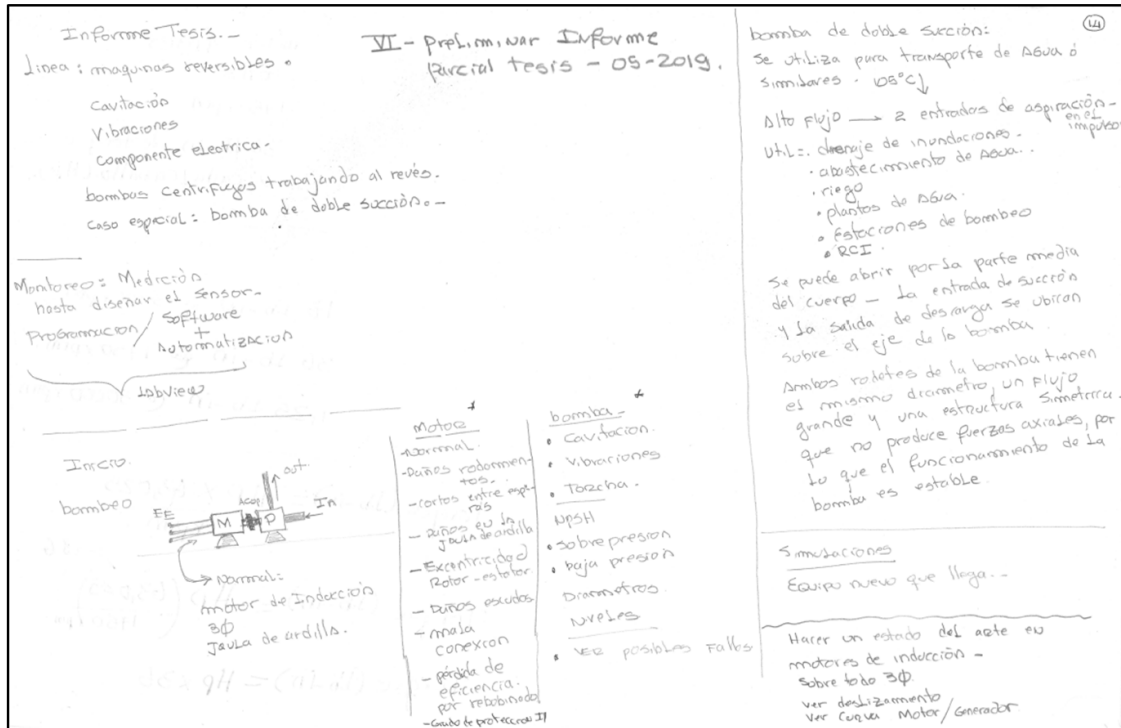 Informe Tesis.-
Linea: maquinas reversibles.
Cavitación
Vibraciones
componente electrica.
bombas centrifugas trabajando al revés.
caso especial: bomba de doble succión.-
Monitoreo: Medición
hasta diseñar el sensor-
Programacion / Software
+
Automatizacion
Labview
Inicio
bombeo
EE
M
Acop
P
out
In
Normal:
motor de Inducción
3Ø
Jaula de ardilla.
VI- Preliminar Informe
Parcial tesis - 05-2019.
motor
-Normal.
-Daños rodamien-
tos.
-cortos entre espi-
ras
- Daños en la
Jaula de ardilla
- Excentricidad
Rotor-estator
- Daños escudos
- mala
conexion
- pérdida de
eficiencia.
por rebobinado
-Grado de proteccion IP
bomba-
• Cavitacion.
• Vibraciones
• Torcha.
NPSH
• sobre presion
• baja presion
Diametros
Niveles
• VER posibles Fallas
14
bomba de doble succión:
Se utiliza para transporte de Agua ó
similares. 105°C↓
Alto Flujo → 2 entradas de aspiración-
en el
impulsor
Util:. drenaje de inundaciones.
• abastecimiento de Agua..
• riego
• plantas de Agua.
• Estaciones de bombeo
• RCI.
Se puede abrir por la parte media
del cuerpo - La entrada de succión
y la salida de descarga se ubican
sobre el eje de la bomba.
Ambos rodetes de la bomba tienen
el mismo diametro, un Flujo
grande y una estructura simetrica.
que no produce fuerzas axiales, por
lo que el funcionamiento de la
bomba es estable.
Simulaciones
Equipo nuevo que llega...
Hacer un estado del arte en
motores de inducción -
Sobre todo 3Ø.
ver deslizamiento
ver curva Motor/Generador.